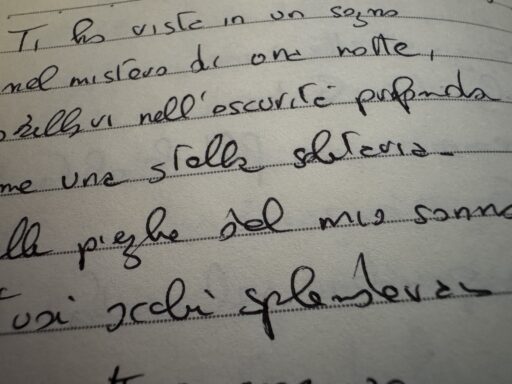 Ti ho vista in un sogno
nel mistero di una notte,
brillavi nell'oscurità profonda
me una stella solitaria
lle pieghe del mio sonno
tuoi occhi splendevan